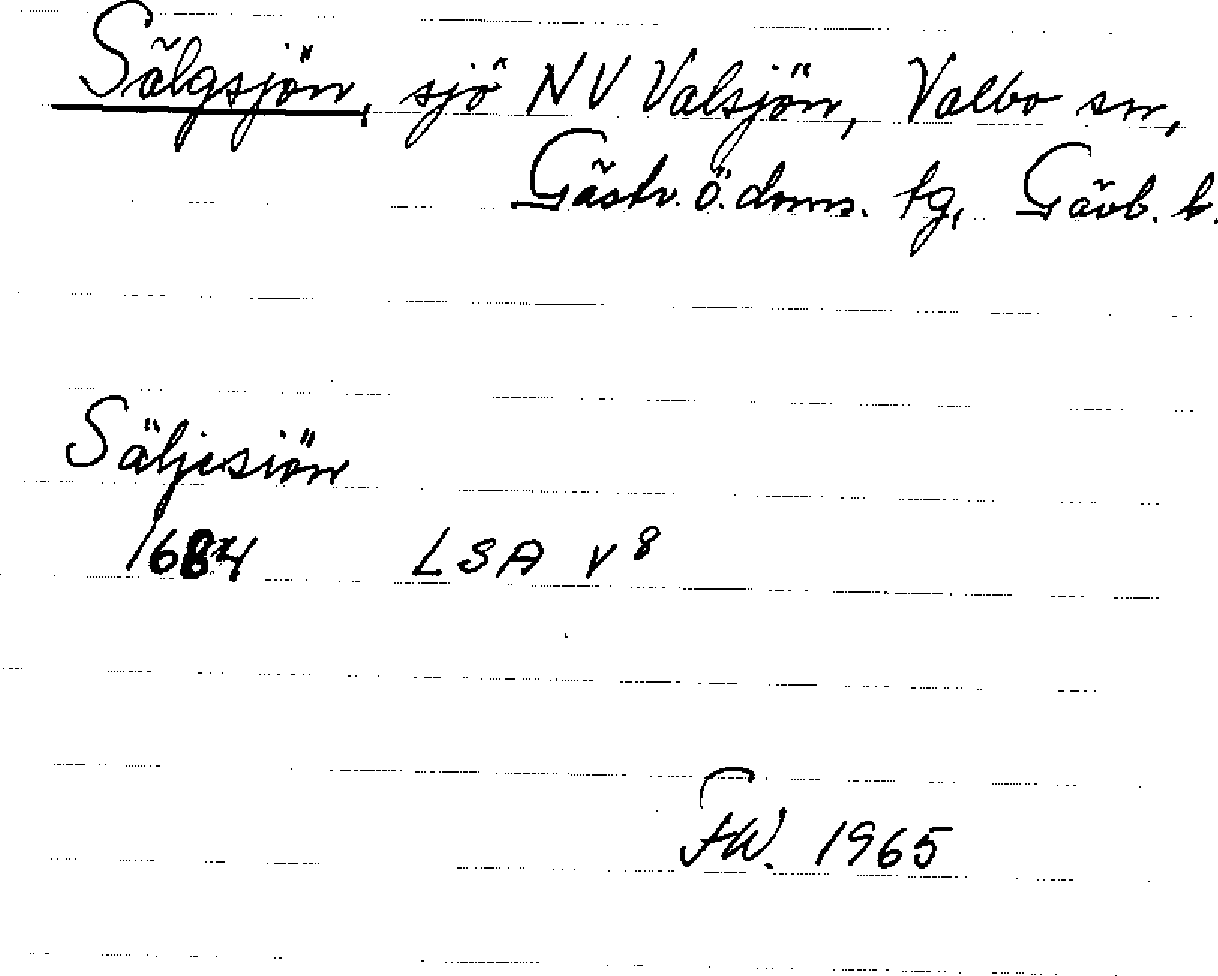 Sälgsjön, sjö NV Valsjön, Valbo sn,
Gästr. ö. doms. tg, Gävb. l.
Säljesiön
1684 LSA V 8
FW. 1965